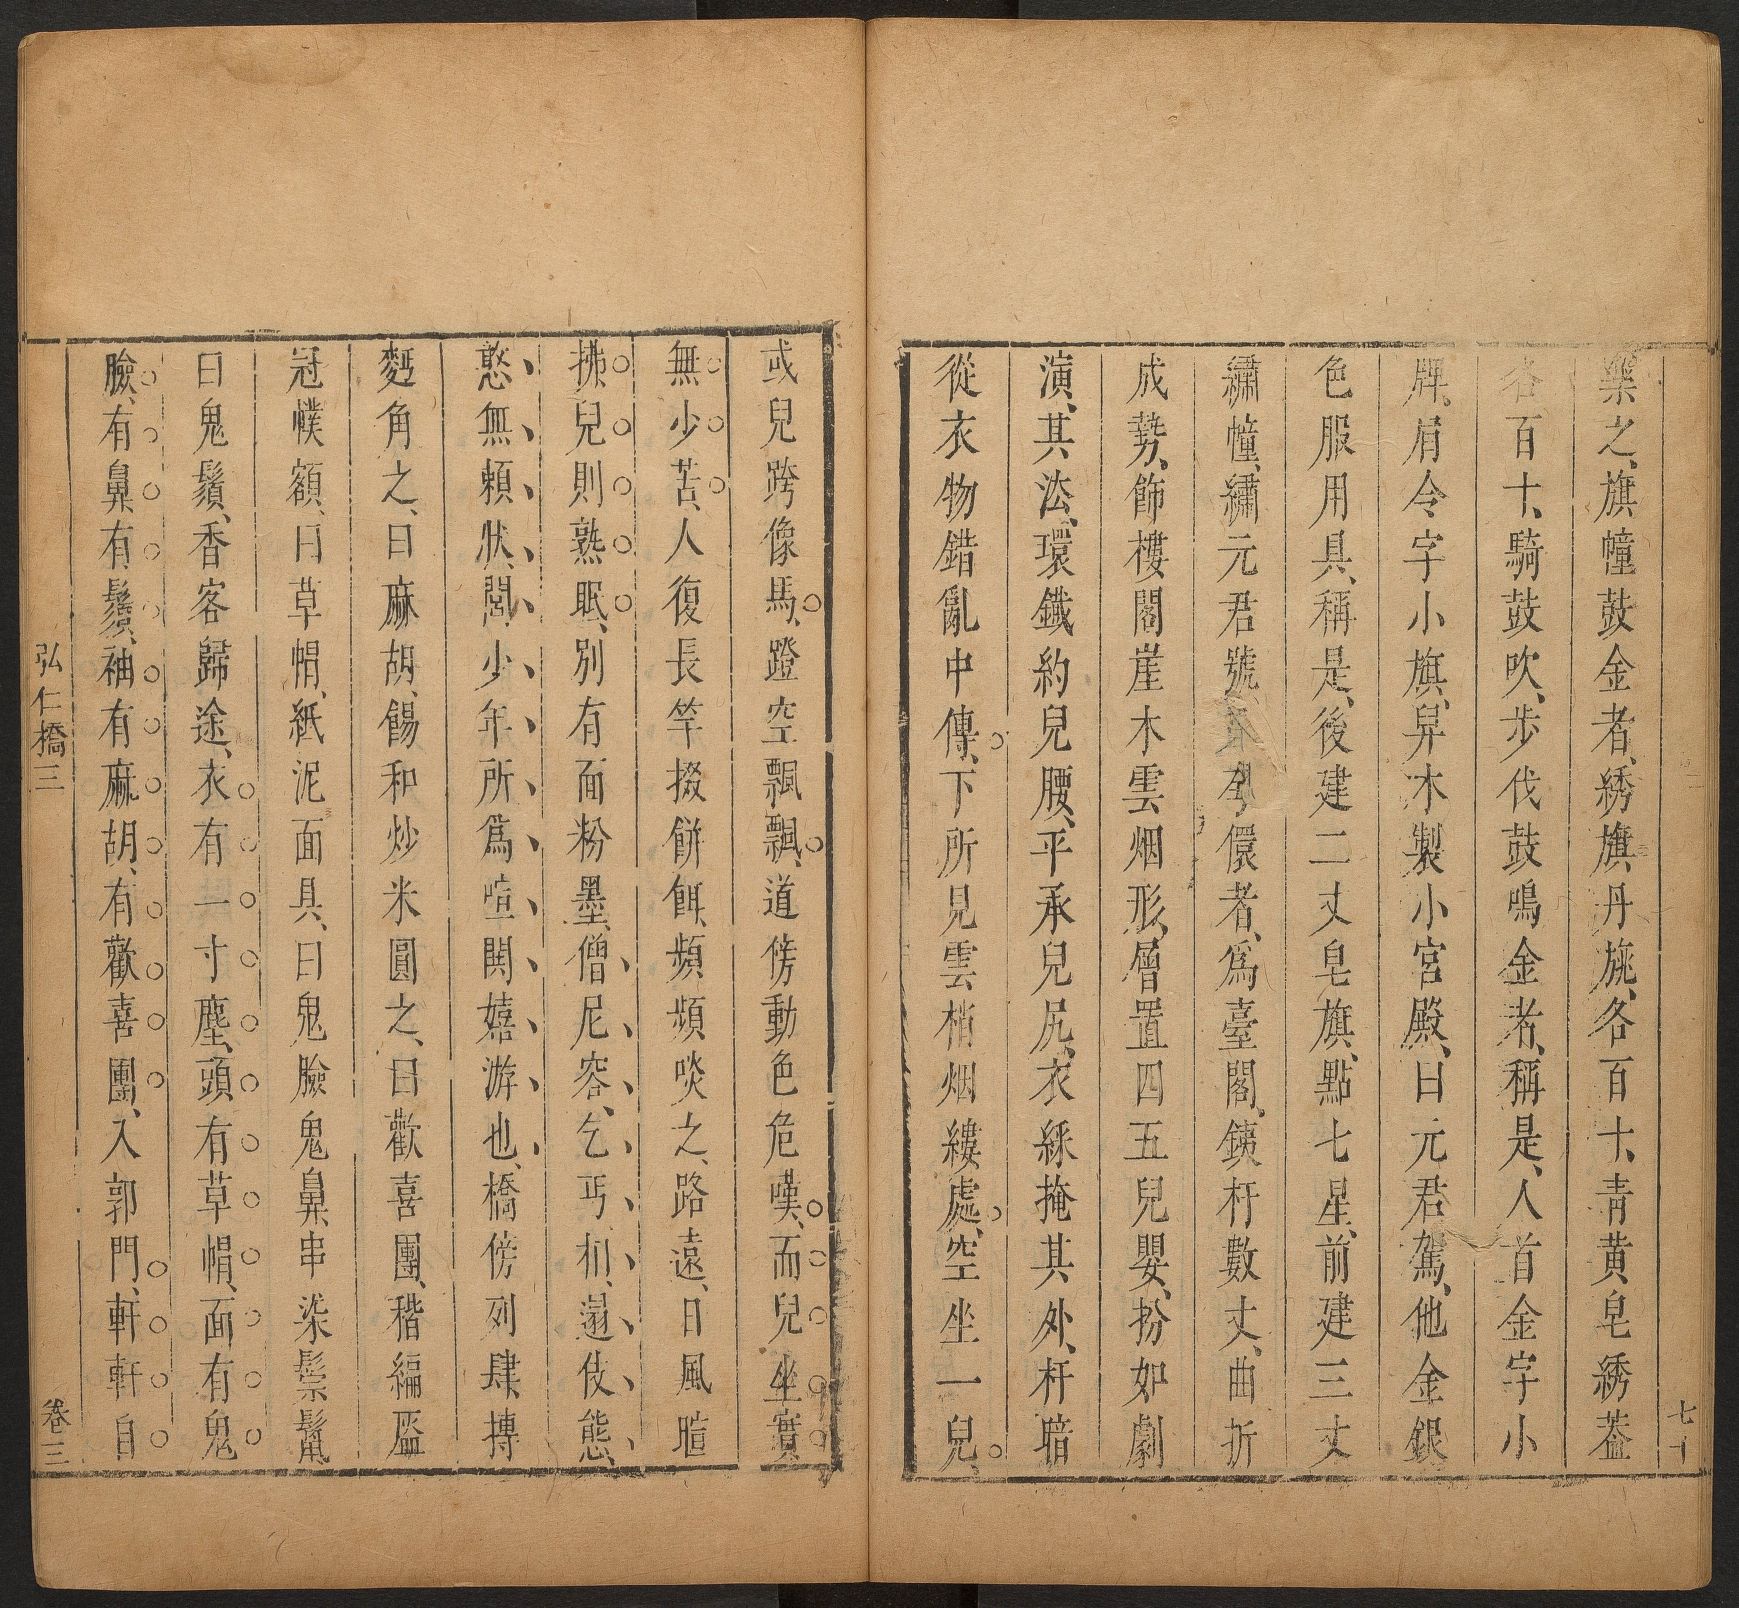 樂之、旗幢鼓金者、綉旗丹旐、各百十、青黃皂綉蓋
各百十、騎鼓吹、步伐鼓鳴金者、稱是、人首金字小
牌、肩令字小旗、舁木製小宮殿、曰元君駕、他金銀
色服用具、稱是、後建二丈皂旗、點七星、前建三丈
繡幢、繡元君號、儇者、爲臺閣、鐵杆數丈、曲折
成勢、飾樓閣崖木雲烟形、層置四五兒嬰、扮如劇
演、其法、環鐵約兒腰、平承兒尻、衣綵掩其外、杆暗
從衣物錯亂中傳、下所見雲梢烟縷處、空坐一兒、
七十
或兒跨像馬、蹬空飄飄、道傍動色危嘆、而兒坐實
無少苦、人復長竿掇餅餌、頻頻啖之、路遠、日風暄
拂兒則熟眠、別有面粉墨、僧尼容、乞丐相、遢伎態、
憨無賴狀、閭少年所爲喧鬨嬉游也、橋傍列肆、摶
麪角之、曰麻胡、餳和炒米圓之、曰歡喜團、稭編盔
冠幞額、曰草帽、紙泥面具、曰鬼臉鬼鼻、串染鬃鬣
曰鬼鬚、香客歸途、衣有一寸塵、頭有草帽、面有鬼
臉、有鼻有鬚、袖有麻胡、有歡喜團、入郭門、軒軒自
弘仁橋三
卷三